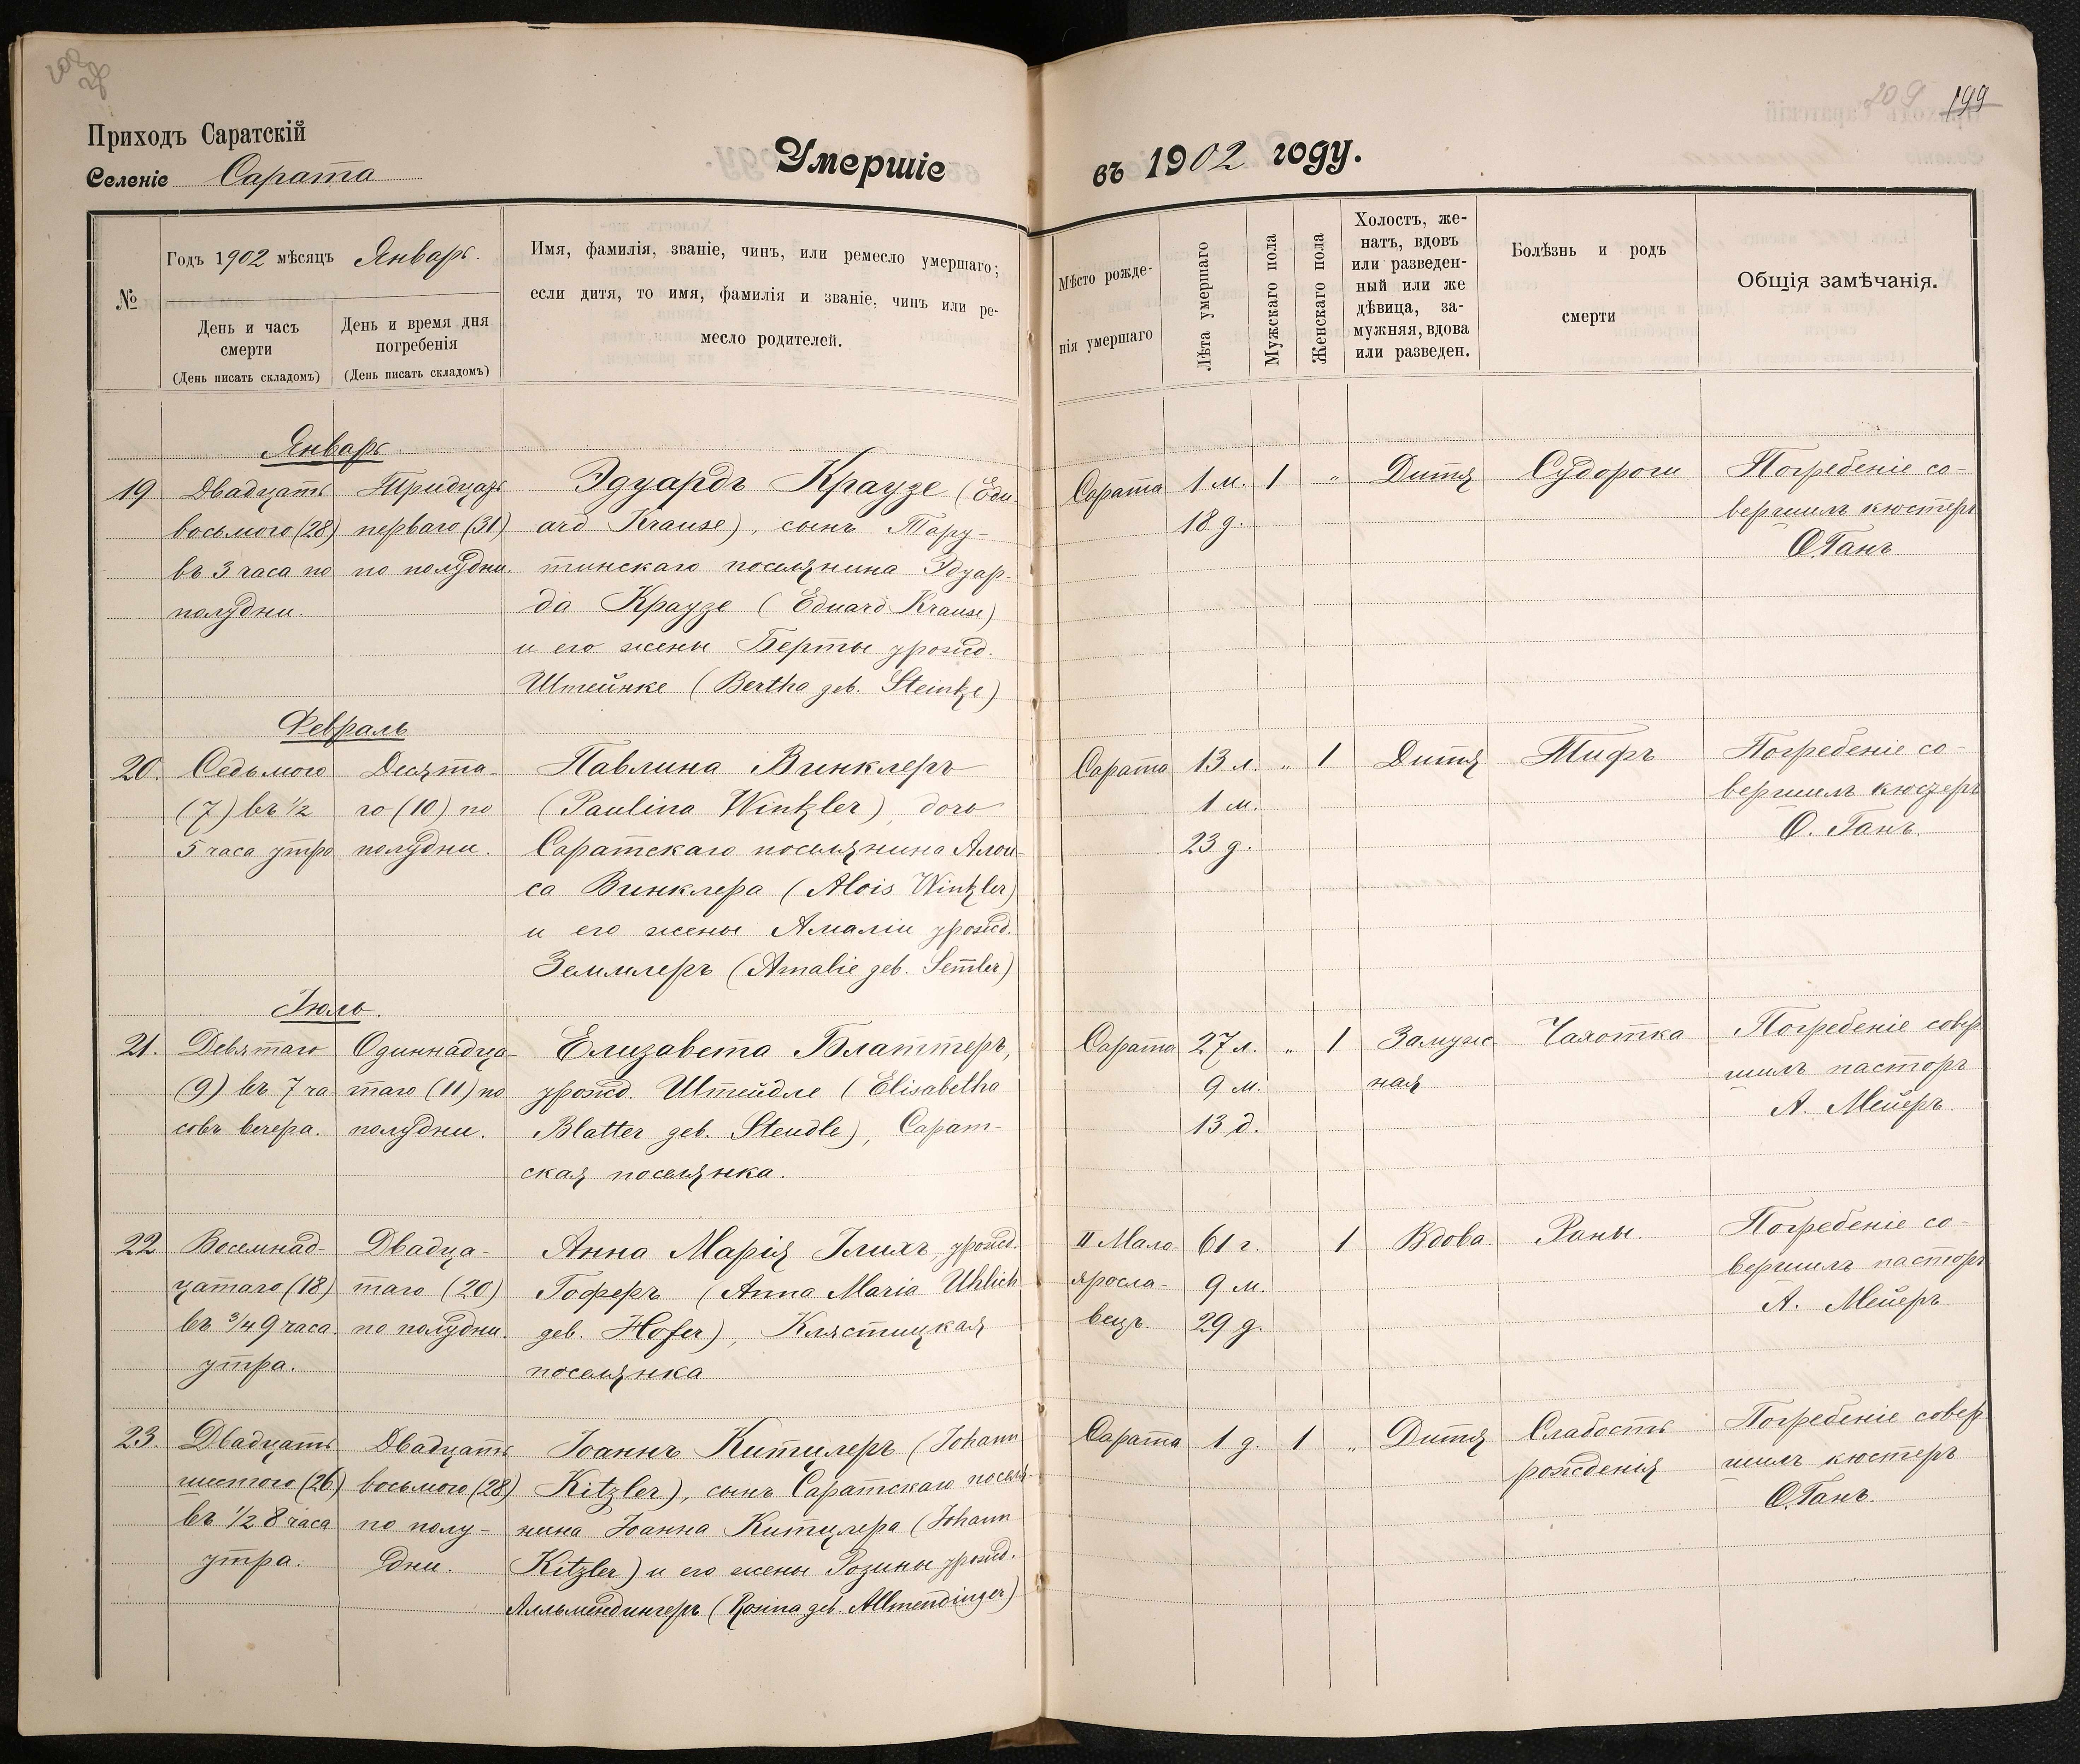 209 199
Приходъ Саратскій
Селеніе Сарата
Умершіе
въ 1902 году.
№
Годъ 1902 мѣсяцъ Январь.
День и часъ
смерти
(День писать складомъ)
День и время дня
погребенія
(День писать складомъ)
Имя, фамилія, званіе, чинъ, или ремесло умершаго;
если дитя, то имя, фамилія и званіе, чинъ или ре-
месло родителей.
Мѣсто рожде-
нія умершаго
Лѣта умершаго
Мужскаго пола
Женскаго пола
Холостъ, же-
натъ, вдовъ
или разведен-
ный или же
дѣвица, за-
мужняя, вдова
или разведен.
Болѣзнь и родъ
смерти
Общія замѣчанія.
Январь
19
Двадцать
восьмого (28)
въ 3 часа по
полудни.
Тридцать
перваго (31)
по полудни.
Эдуардъ Краузе (Edu-
ard Krause), сынъ Тару-
тинскаго поселянина Эдуар-
да Краузе (Eduard Krause)
и его жены Берты урожд.
Штейнке (Bertha geb. Steinke)
Сарата
1 м.
18 д.
1
"
Дитя
Судороги
Погребеніе со-
вершилъ кюстеръ
О. Ганъ
Февраль
20.
Седьмого
(7) въ ½
5 часа утра
Десята-
го (10) по
полудни.
Павлина Винклеръ
(Paulina Winkler), дочь
Саратскаго поселянина Алои-
са Винклера (Alois Winkler)
и его жены Амаліи урожд.
Землеръ (Amalie geb. Semler)
Сарата
13 л.
1 м.
23 д.
"
1
Дитя
Тифъ
Погребеніе со-
вершилъ кюстеръ
О. Ганъ.
Іюль.
21.
Девятаго
(9) въ 7 ча-
совъ вечера.
Одиннадца-
таго (11) по
полудни.
Елизавета Блаттеръ,
урожд. Штейдле (Elisabetha
Blatter geb. Steudle), Сарат-
ская поселянка.
Сарата
27 л.
9 м.
13 д.
"
1
Замуж-
няя
Чахотка
Погребеніе совер-
шилъ пасторъ
А. Мейеръ.
22
Восемнад-
цатаго (18)
въ ¾ 9 часа
утра.
Двадца-
таго (20)
по полудни.
Анна Марія Улихъ, урожд.
Гоферъ (Anna Maria Uhlich
geb. Hofer), Клястицкая
поселянка
II Мало-
яросла-
вецъ.
61 г.
9 м.
29 д.
1
Вдова.
Раны.
Погребеніе со-
вершилъ пасторъ
А. Мейеръ
23.
Двадцать
шестого (26)
въ ½ 8 часа
утра.
Двадцать
восьмого (28)
по полу-
дни.
Іоаннъ Китцлеръ (Johann
Kitzler), сынъ Саратскаго поселя-
нина Іоанна Китцлера (Johann
Kitzler) и его жены Розины урожд.
Алльмендингеръ (Rosina geb. Allmendinger)
Сарата
1 д.
1
"
Дитя
Слабость
рожденія
Погребеніе совер-
шилъ кюстеръ
О. Ганъ.